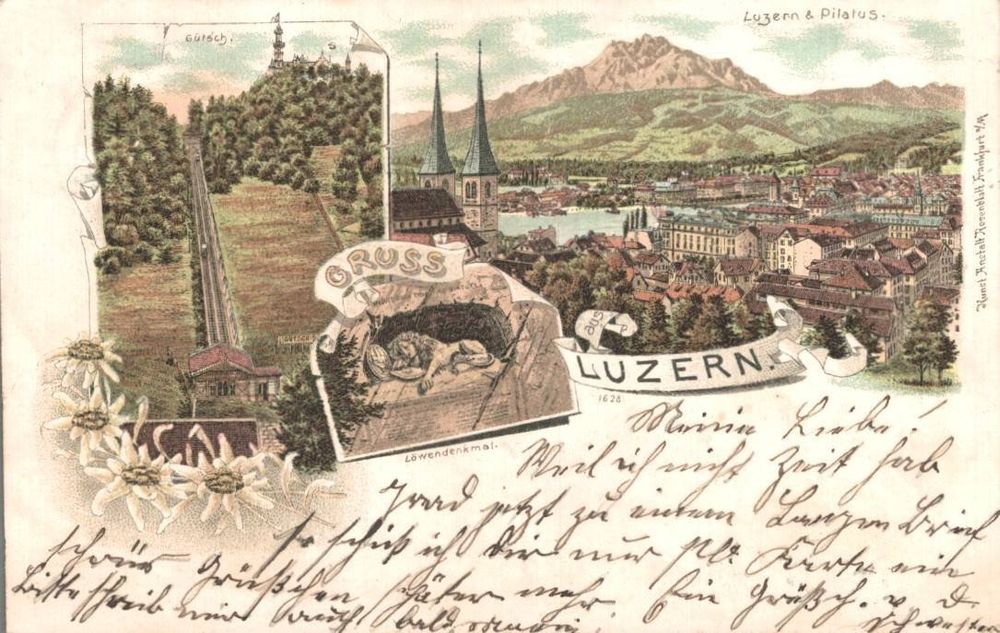 Gütsch.
Luzern & Pilatus.
GRUSS
aus
LUZERN.
1628
Löwendenkmal.
Kunst Anstalt Rosenblatt Frankfurt a/M
Meine Liebe!
Weil ich nicht Zeit hab
grad jetzt zu einem Langen Brief
so schick ich Dir nur Karte ein
Grüßchen später mehr. Ein Grüßch. v d.
Bitte schreib mir auch bald Schwester